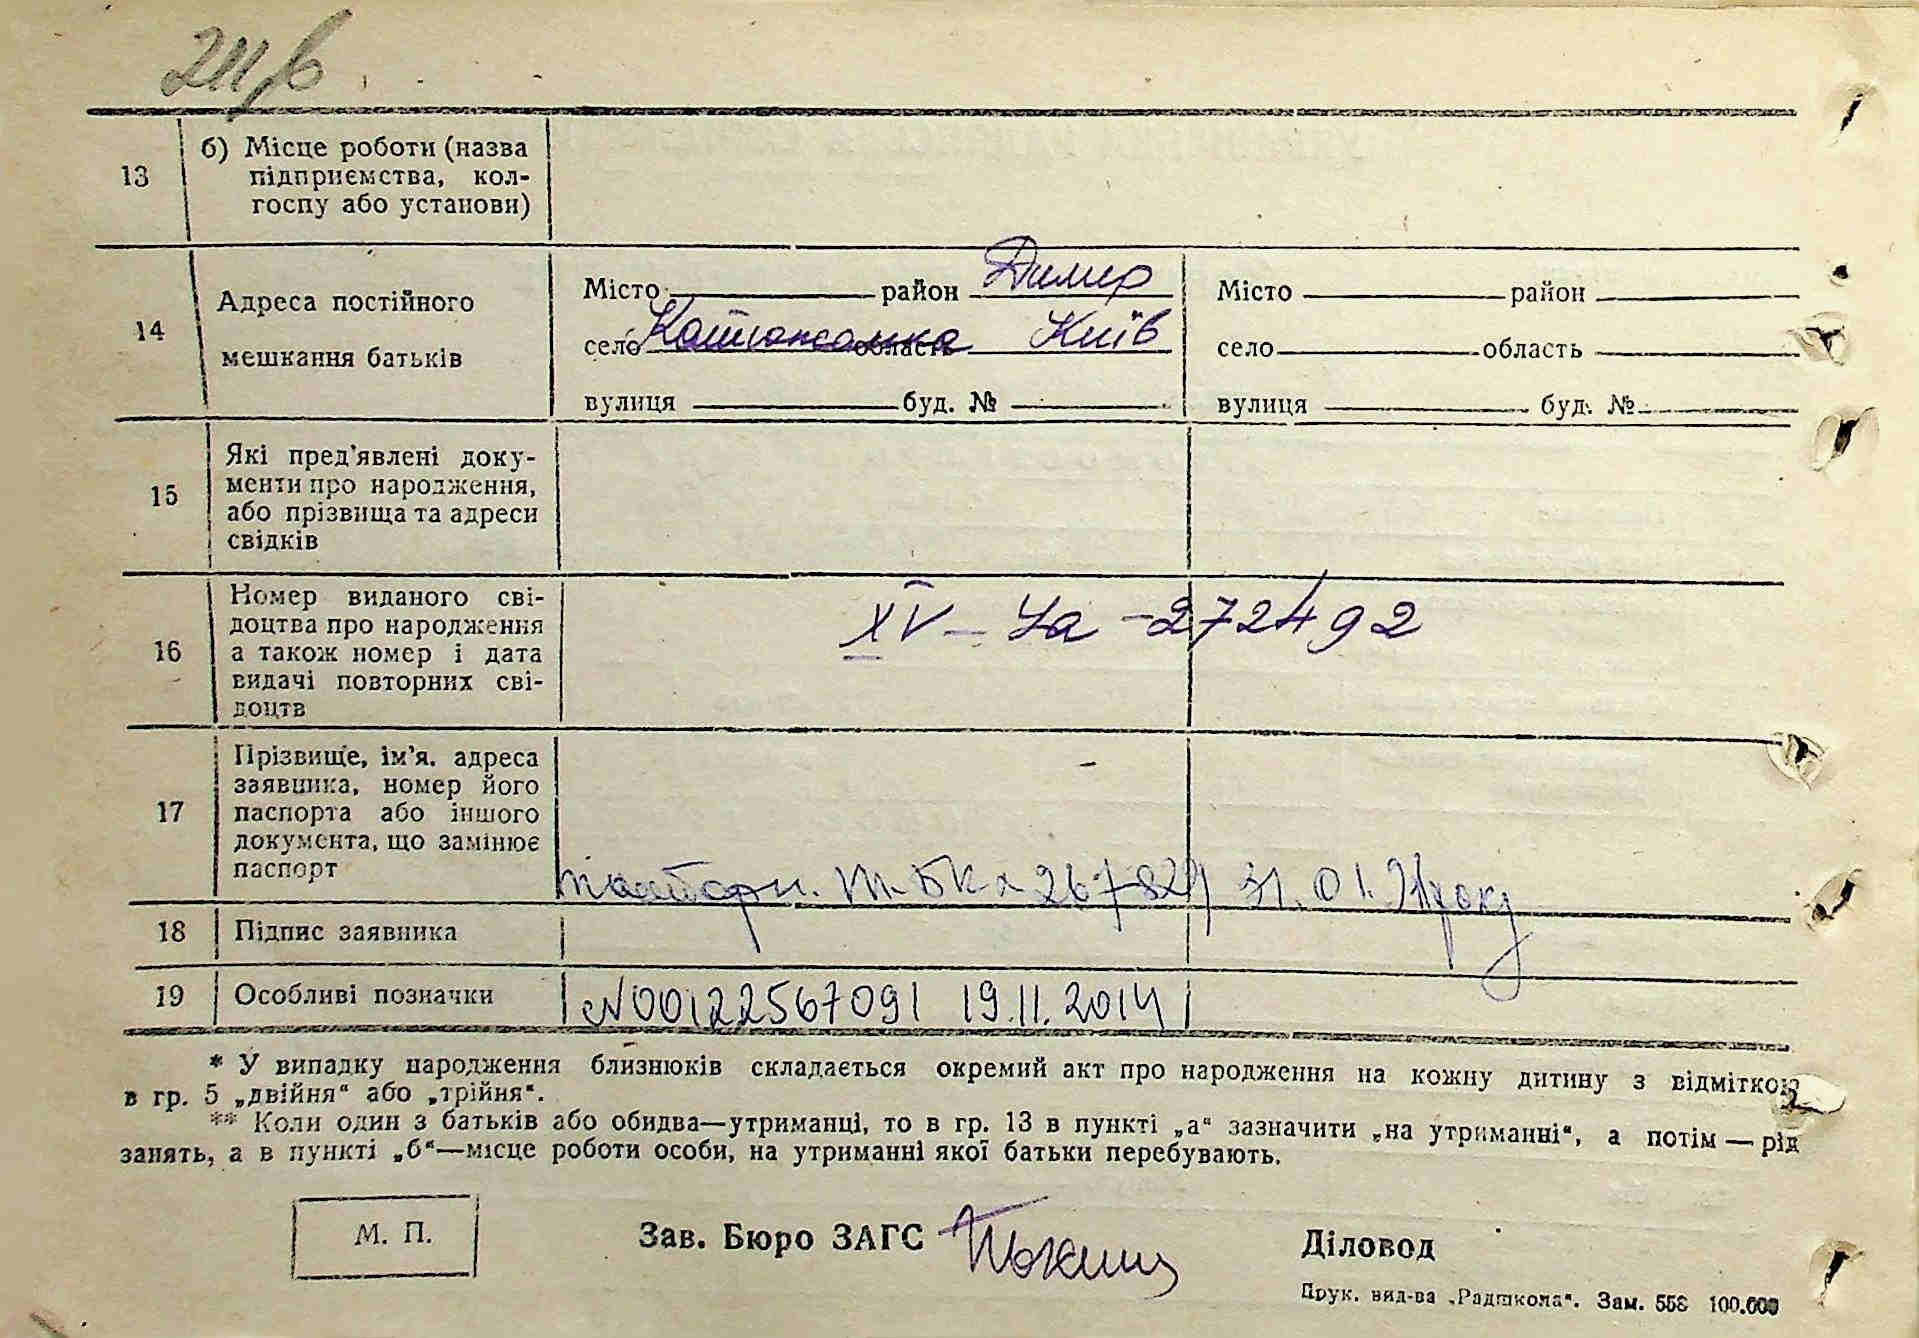 211/6
13 б) Місце роботи (назва
підприємства, кол-
госпу або установи)
14 Адреса постійного
мешкання батьків
Місто район Димир
село Катюжанка область Київ
вулиця буд. №
Місто район
село область
вулиця буд. №
15 Які пред'явлені доку-
менти про народження,
або прізвища та адреси
свідків
16 Номер виданого сві-
доцтва про народження
а також номер і дата
видачі повторних сві-
доцтв
XV – Уа – 272492
17 Прізвище, ім'я. адреса
заявника, номер його
паспорта або іншого
документа, що замінює
паспорт
31.01.
18 Підпис заявника
19 Особливі позначки
№00122567091 19.11.2014
* У випадку народження близнюків складається окремий акт про народження на кожну дитину з відміткою
в гр. 5 „двійня“ або „трійня“.
** Коли один з батьків або обидва—утриманці, то в гр. 13 в пункті „а“ зазначити „на утриманні“, а потім — рід
занять, а в пункті „б“—місце роботи особи, на утриманні якої батьки перебувають.
М. П.
Зав. Бюро ЗАГС
Діловод
Друк. вид-ва „Радшкола“. Зам. 558 100.000